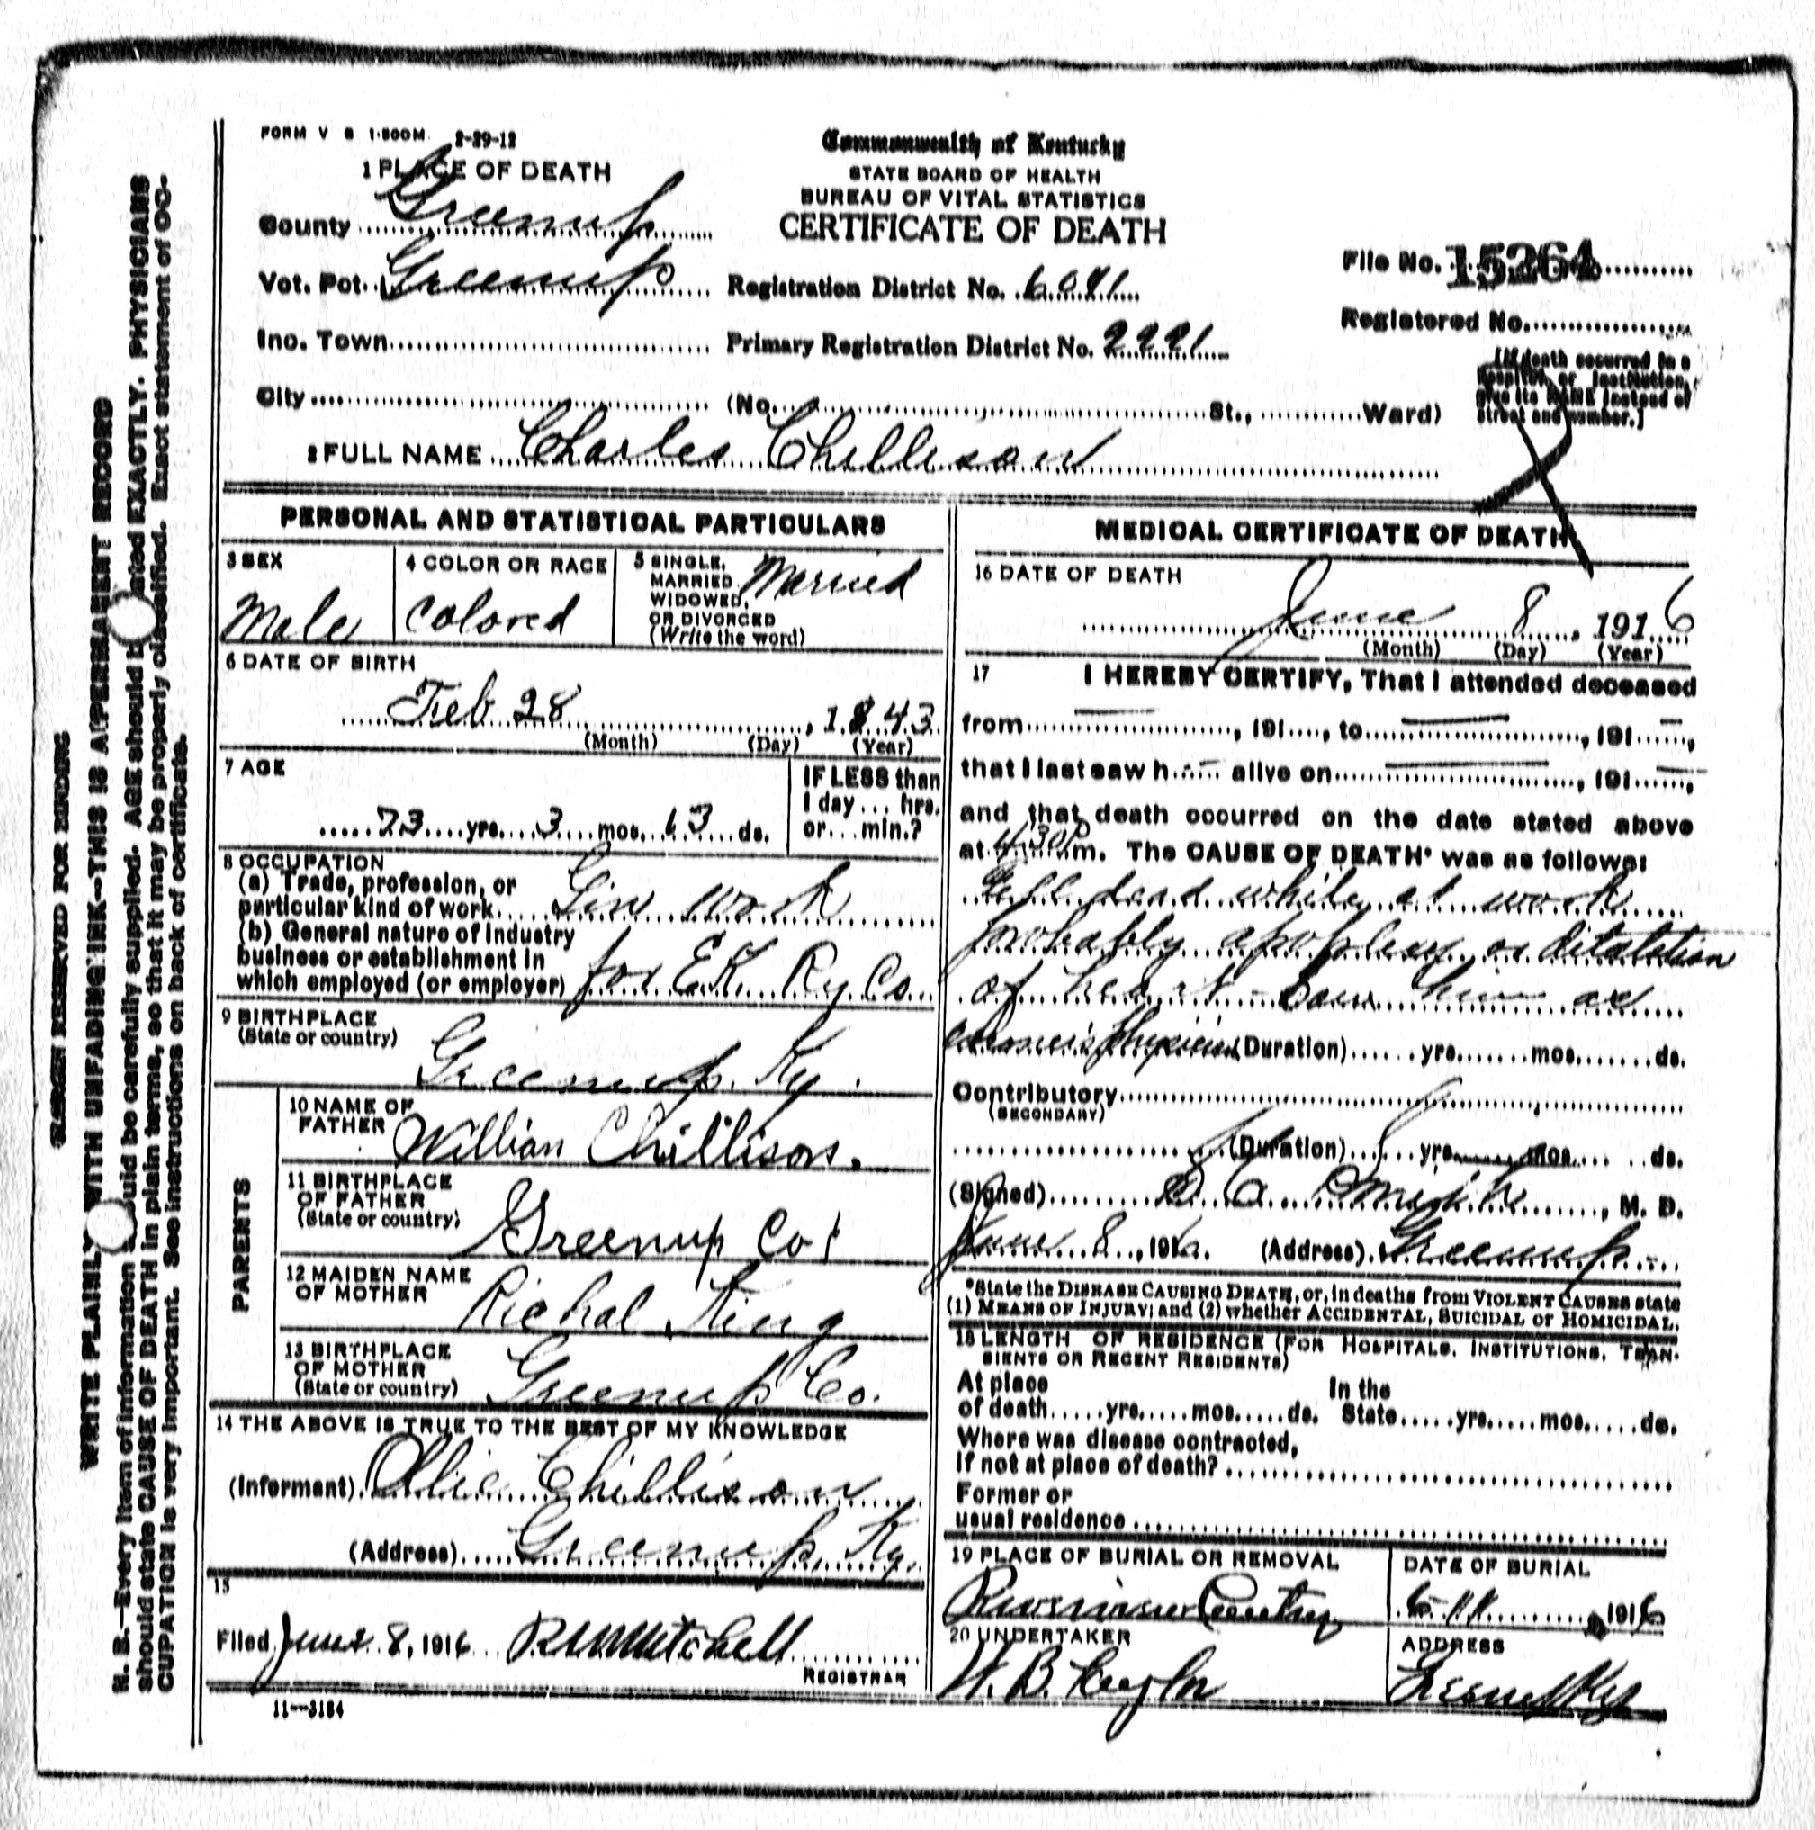 FORM V S 1-500M. 2-29-12
Commonwealth of Kentucky
STATE BOARD OF HEALTH
BUREAU OF VITAL STATISTICS
CERTIFICATE OF DEATH
1 PLACE OF DEATH
County Greenup
Vot. Pct. Greenup
Registration District No. 6041
File No. 15264
Registered No.
Inc. Town
Primary Registration District No. 2221
City (No. St., Ward)
(If death occurred in a
hospital or institution,
give its NAME instead of
street and number.)
2 FULL NAME Charles Chellison
PERSONAL AND STATISTICAL PARTICULARS
3 SEX
Male
4 COLOR OR RACE
Colored
5 SINGLE,
MARRIED,
WIDOWED,
OR DIVORCED
(Write the word)
Married
6 DATE OF BIRTH
Feb 28, 1843
(Month) (Day) (Year)
7 AGE
73 yrs. 3 mos. 13 ds.
IF LESS than
1 day... hrs.
or... min.?
8 OCCUPATION
(a) Trade, profession, or
particular kind of work work
(b) General nature of industry
business or establishment in
which employed (or employer) for E K Ry Co
9 BIRTHPLACE
(State or country)
Greenup Ky.
PARENTS
10 NAME OF
FATHER
Willian Chillison.
11 BIRTHPLACE
OF FATHER
(State or country)
Greenup Co
12 MAIDEN NAME
OF MOTHER
Richal King
13 BIRTHPLACE
OF MOTHER
(State or country)
Greenup Co.
14 THE ABOVE IS TRUE TO THE BEST OF MY KNOWLEDGE
(Informant) Ollie Chillison
(Address) Greenup, Ky.
15
Filed June 8, 1916 R M Mitchell
REGISTRAR
11-3184
MEDICAL CERTIFICATE OF DEATH
16 DATE OF DEATH
June 8, 1916
(Month) (Day) (Year)
17 I HEREBY CERTIFY, That I attended deceased
from , 191 , to , 191 ,
that I last saw h alive on , 191 ,
and that death occurred on the date stated above
at 4:30P m. The CAUSE OF DEATH* was as follows:
Fell dead while at work
probably apoplexy or dilatation
of heart - Saw him as
coroner's physician (Duration) yrs. mos. ds.
Contributory
(SECONDARY)
(Duration) yrs. mos. ds.
(Signed) , M. D.
June 8, 1916. (Address) Greenup
*State the DISEASE CAUSING DEATH, or, in deaths from VIOLENT CAUSES state
(1) MEANS OF INJURY; and (2) whether ACCIDENTAL, SUICIDAL or HOMICIDAL.
18 LENGTH OF RESIDENCE (FOR HOSPITALS, INSTITUTIONS, TRAN-
SIENTS OR RECENT RESIDENTS)
At place In the
of death yrs. mos. ds. State yrs. mos. ds.
Where was disease contracted,
If not at place of death?
Former or
usual residence
19 PLACE OF BURIAL OR REMOVAL
DATE OF BURIAL
6-11, 1916
20 UNDERTAKER
W. B. Taylor
ADDRESS
Greenup Ky
MARGIN RESERVED FOR BINDING
WRITE PLAINLY WITH UNFADING INK--THIS IS A PERMANENT RECORD
N. B.--Every item of information uld be carefully supplied. AGE should ated EXACTLY. PHYSICIANS
should state CAUSE OF DEATH in plain terms, so that it may be properly classified. Exact statement of OC-
CUPATION is very important. See instructions on back of certificate.